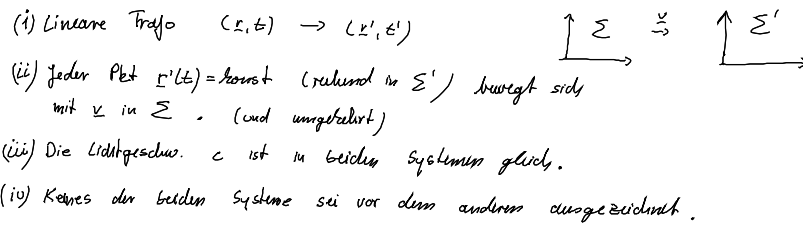 (i) Lineare Trafo (r, t) → (r', t') Σ v→ Σ'
(ii) Jeder Pkt r'(t) = konst (ruhend in Σ') bewegt sich
mit v in Σ. (und umgekehrt)
(iii) Die Lichtgeschw. c ist in beiden Systemen gleich.
(iv) Keines der beiden Systeme sei vor dem anderen ausgezeichnet.